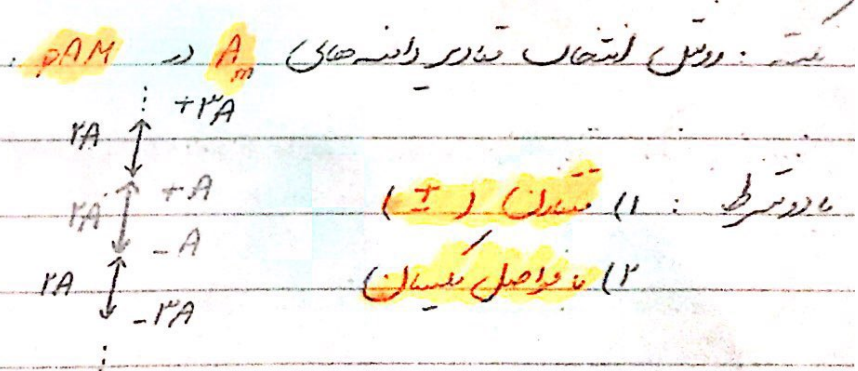 نکته : روش انتخاب مقادیر دامنه‌های Aₘ در PAM :
⋮
+۳A
۲A
+A
۲A
-A
۲A
-۳A
⋮
با دو شرط : ۱) متقارن (±)
۲) با فواصل یکسان